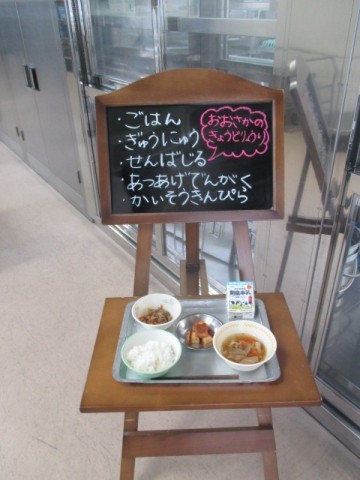 ・ごはん
・ぎゅうにゅう
・せんばじる
・あつあげでんがく
・かいそうきんぴら
おおさかの
きょうどりょうり